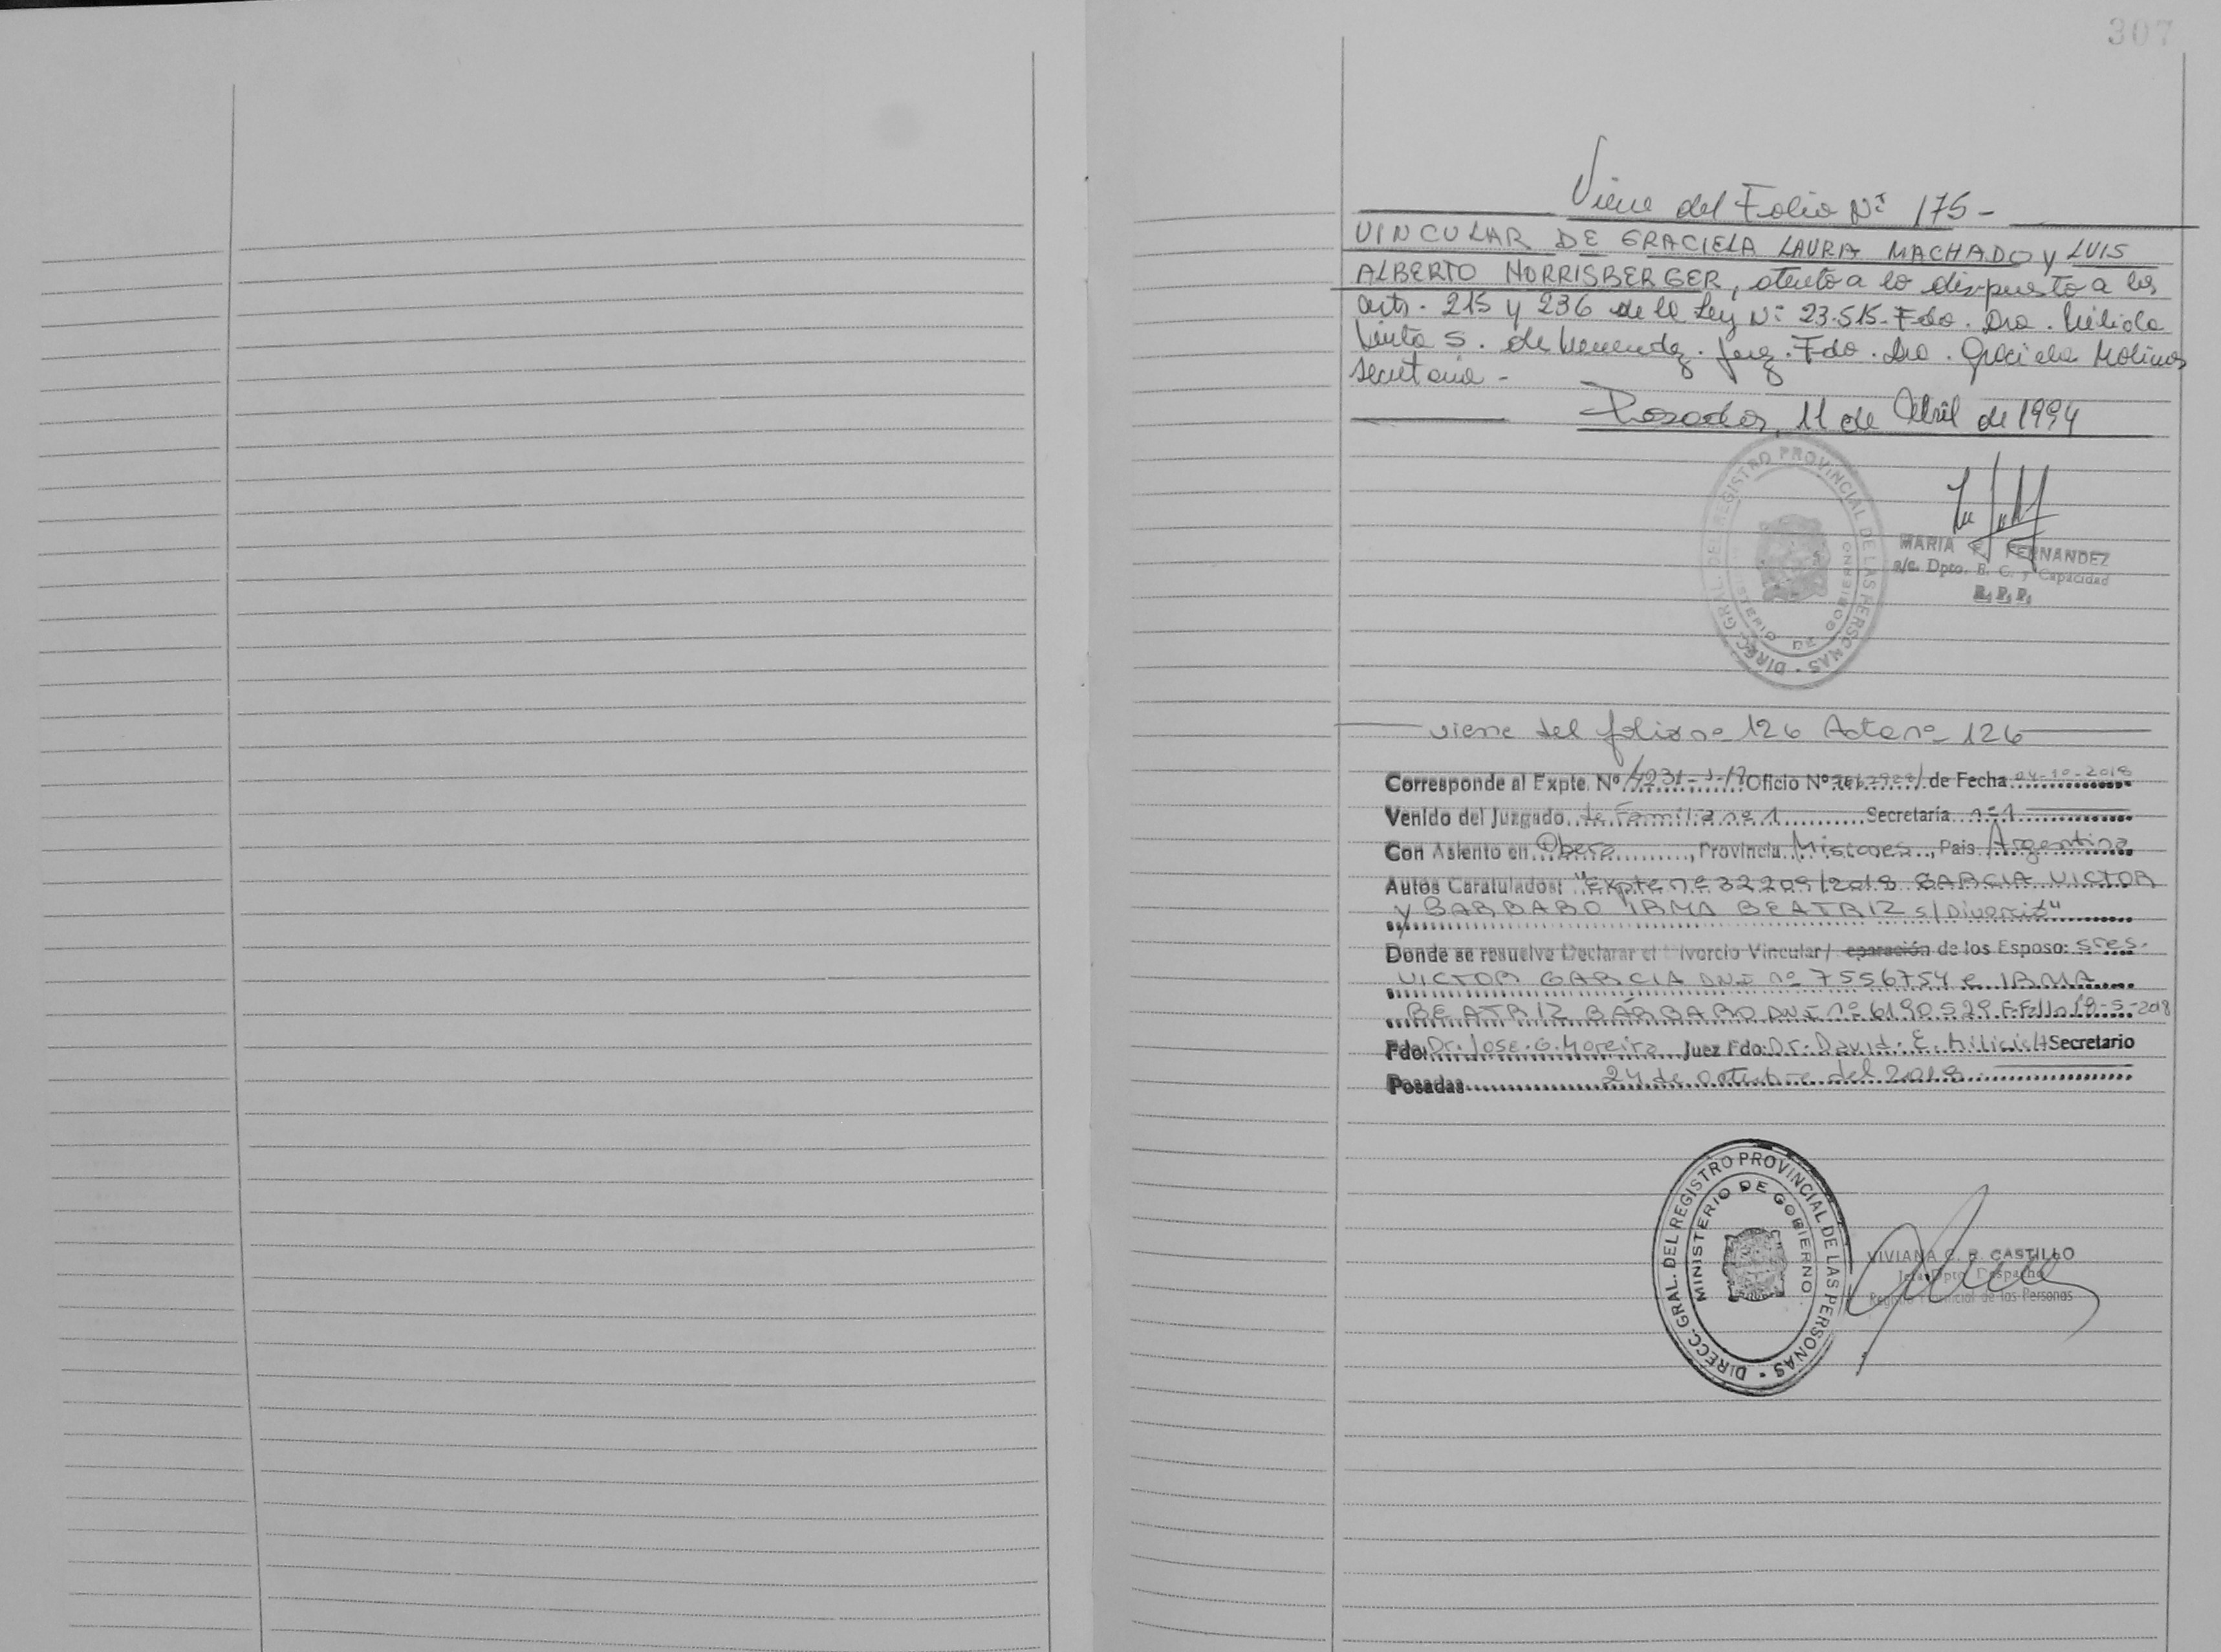 307
Viene del Folio Nº 175-
VINCULAR DE GRACIELA LAURA MACHADO y LUIS
ALBERTO HORRISBERGER, atento a lo dispuesto a los
arts. 215 y 236 de la Ley Nº 23.515- Fdo. Dra.
S. de Juez. Fdo. Dra. Graciela Molinas
secretaria-
Posadas, 11 de Abril de 1994
DIRECC. GRAL. DEL REGISTRO PROVINCIAL DE LAS PERSONAS
MINISTERIO DE GOBIERNO
MARIA E. FERNANDEZ
a/c. Dpto. E. C. y Capacidad
R. P. P.
viene del folio nº 126 Acta nº 126
Corresponde al Expte. Nº Oficio Nº de Fecha 04-10-2018
Venido del Juzgado de Familia nº 1 Secretaría nº 1
Con Asiento en Obera, Provincia Misiones, Pais Argentina
Autos Caratulados: "Expte nº 32209/2018 GARCIA VICTOR
y BARBARO IRMA BEATRIZ s/Divorcio"
Donde se resuelve Declarar el Divorcio Vincular/ eparación de los Esposo: sres.
VICTOR GARCIA DNI nº 7556754 e IRMA
BEATRIZ BÁRBARO DNI nº 6190529 F. Fallo 18-5-2018
Fdo: Dr. Jose. G. Moreira Juez Fdo: Dr. David. E. Secretario
Posadas 24 de octubre del 2018
DIRECC. GRAL. DEL REGISTRO PROVINCIAL DE LAS PERSONAS
MINISTERIO DE GOBIERNO
VIVIANA C. R. CASTILLO
Jefa Dpto. Despacho
Registro Provincial de las Personas